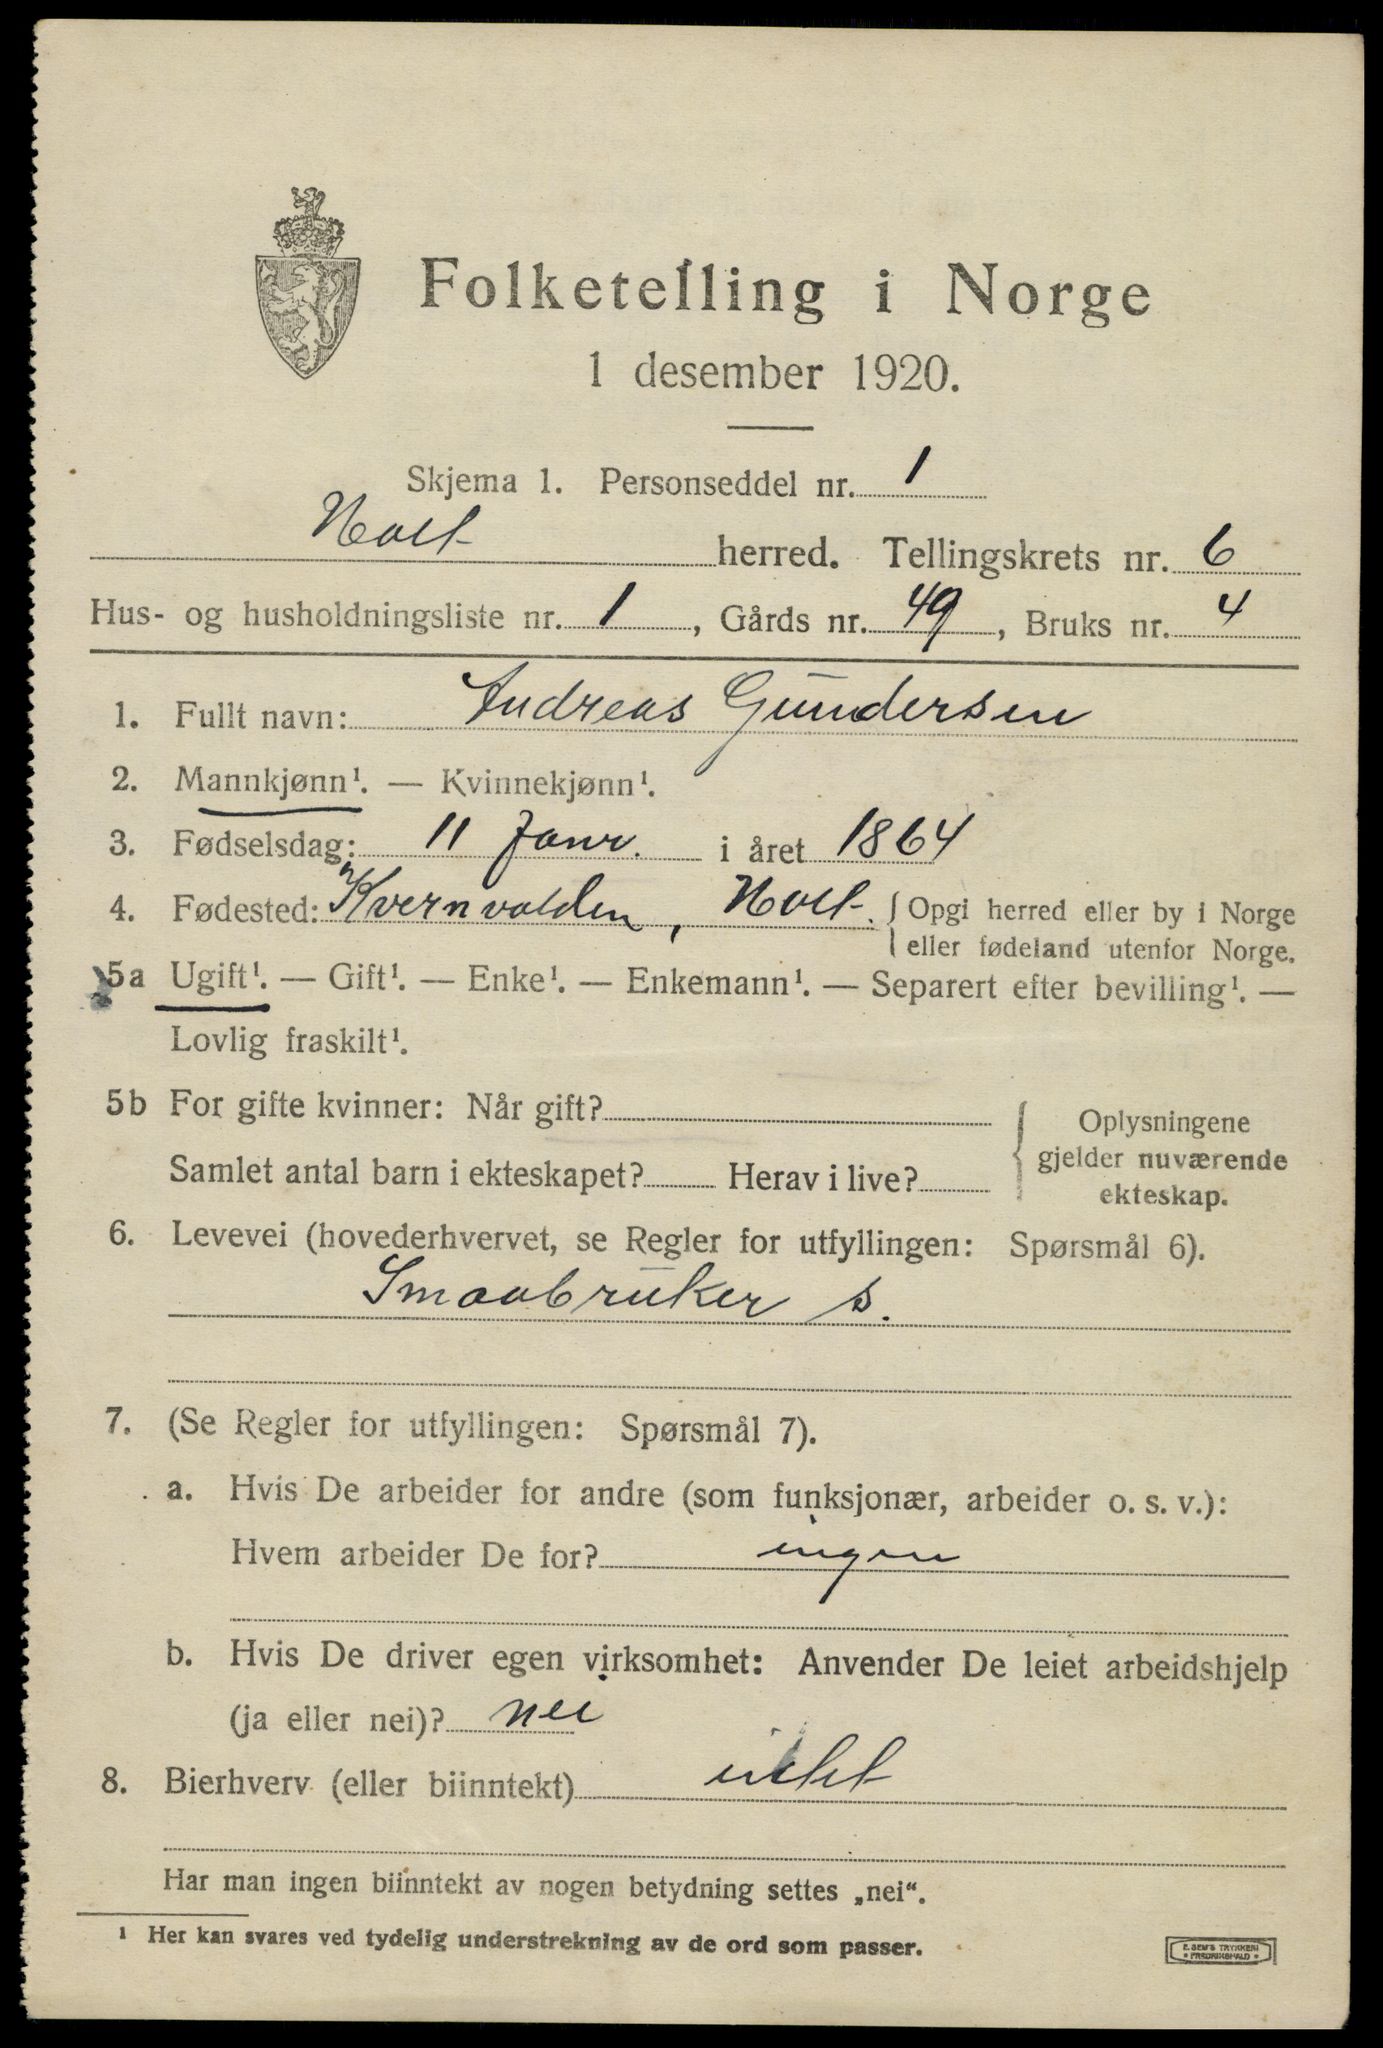 Folketelling i Norge
1 desember 1920.
Skjema 1. Personseddel nr. 1
Holt herred. Tellingskrets nr. 6
Hus- og husholdningsliste nr. 1, Gårds nr. 49, Bruks nr. 4
1. Fullt navn: Andreas Gundersen
2. Mannkjønn¹. — Kvinnekjønn¹.
3. Fødselsdag: 11 Janr. i året 1864
4. Fødested: Kvernvolden, Holt. { Opgi herred eller by i Norge
eller fødeland utenfor Norge.
5a Ugift¹. — Gift¹. — Enke¹. — Enkemann¹. — Separert efter bevilling¹. —
Lovlig fraskilt¹.
5b For gifte kvinner: Når gift?
Samlet antal barn i ekteskapet? Herav i live?
Oplysningene
gjelder nuværende
ekteskap.
6. Levevei (hovederhvervet, se Regler for utfyllingen: Spørsmål 6).
Smaabruker s.
7. (Se Regler for utfyllingen: Spørsmål 7).
a. Hvis De arbeider for andre (som funksjonær, arbeider o. s. v.):
Hvem arbeider De for? ingen
b. Hvis De driver egen virksomhet: Anvender De leiet arbeidshjelp
(ja eller nei)? nei
8. Bierhverv (eller biinntekt)
Har man ingen biinntekt av nogen betydning settes „nei“.
¹ Her kan svares ved tydelig understrekning av de ord som passer.
E. SEM'S TRYKKERI
• FREDRIKSHALD •